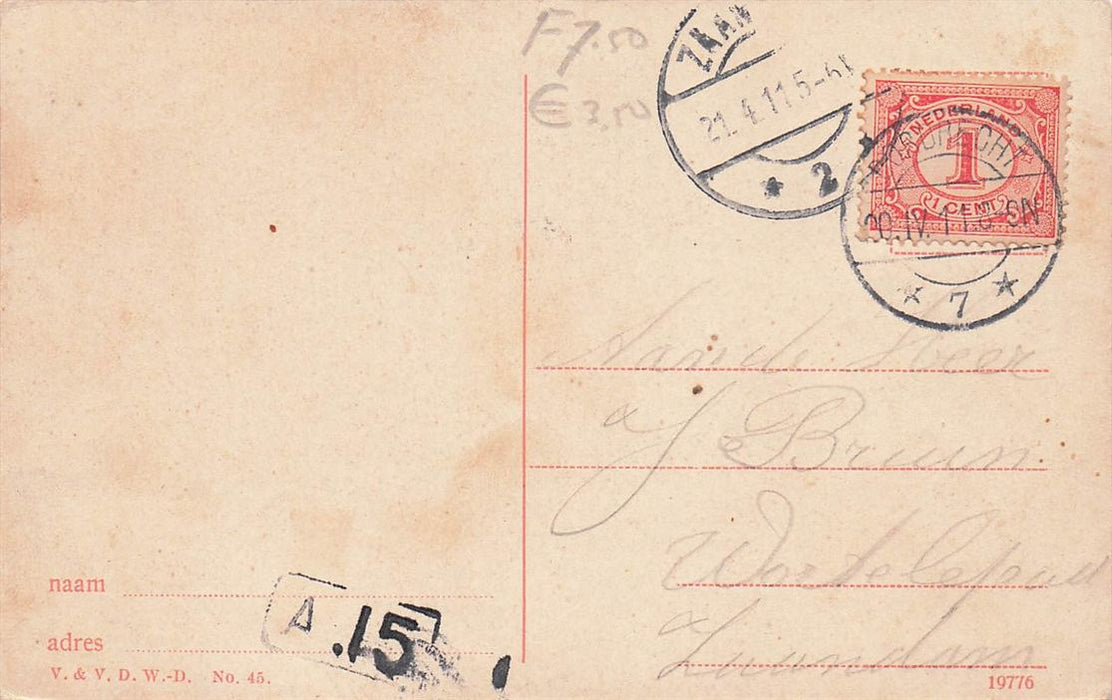 F 7.50
€ 3,50
ZAAN
21. 4. 11 5-6V
2
NEDERLAND
1
1 CENT
20. IV. 11. 8-9N
7
Aan de Heer
J de Bruin
Zaandam
naam
adres
V. & V. D. W.-D. No. 45.
A .15
19776